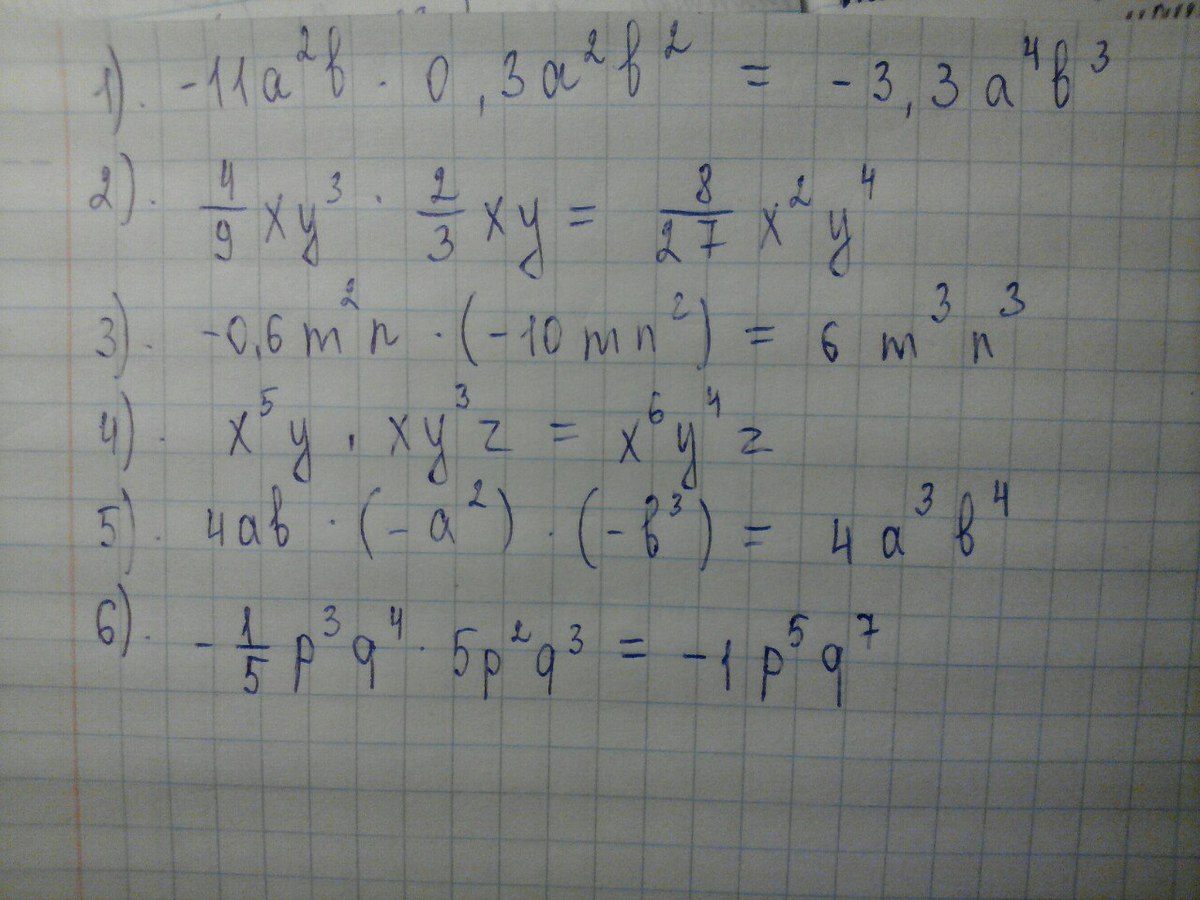 1). -11a²b · 0,3a²b² = -3,3a⁴b³
2). 4/9 xy³ · 2/3 xy = 8/27 x²y⁴
3). -0,6m²n · (-10mn²) = 6m³n³
4). x⁵y · xy³z = x⁶y⁴z
5). 4ab · (-a²) · (-b³) = 4a³b⁴
6). -1/5 p³q⁴ · 5p²q³ = -1p⁵q⁷